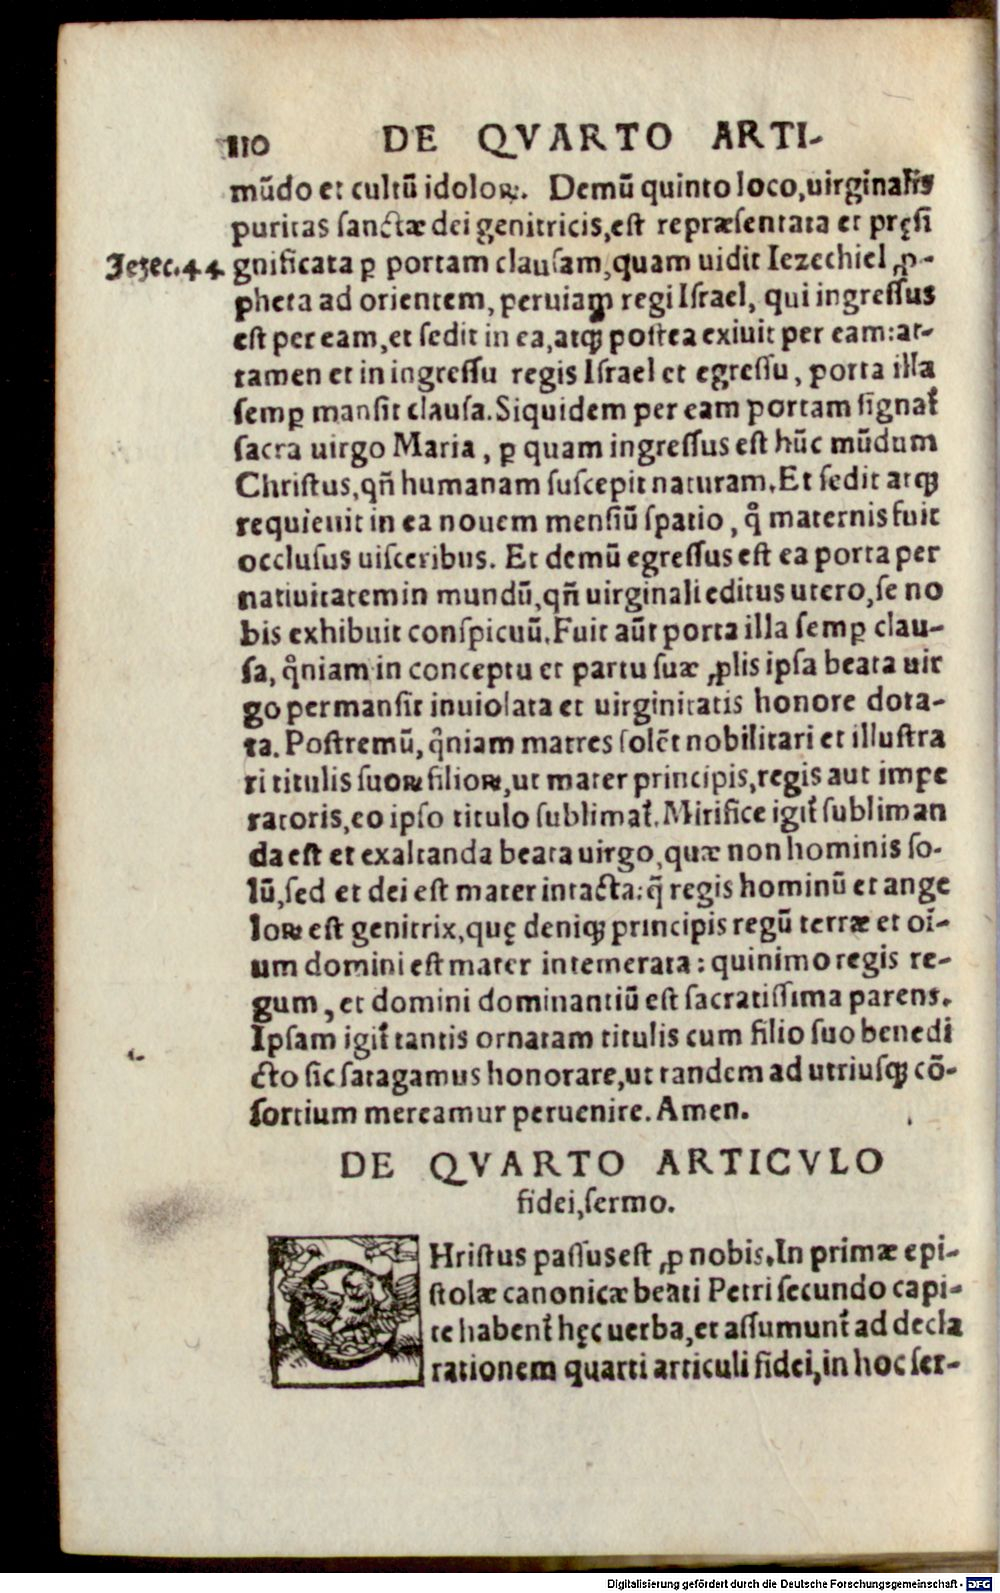 110 DE QVARTO ARTI-
mūdo et cultū idoloꝝ. Demū quinto loco, uirginalis
puritas sanctæ dei genitricis, est repræsentata et pręsi
Iezec. 44. gnificata ꝑ portam clausam, quam uidit Iezechiel ꝓ-
pheta ad orientem, peruiam regi Israel, qui ingressus
est per eam, et sedit in ea, atqꝫ postea exiuit per eam: at-
tamen et in ingressu regis Israel et egressu, porta illa
semꝑ mansit clausa. Siquidem per eam portam signat᷑
sacra uirgo Maria, ꝑ quam ingressus est hūc mūdum
Christus, qñ humanam suscepit naturam. Et sedit atqꝫ
requieuit in ea nouem mensiū spatio, qͦ maternis fuit
occlusus uisceribus. Et demū egressus est ea porta per
natiuitatem in mundū, qñ uirginali editus utero, se no
bis exhibuit conspicuū. Fuit aūt porta illa semꝑ clau-
sa, qͦniam in conceptu et partu suæ ꝓlis ipsa beata uir
go permansit inuiolata et uirginitatis honore dota-
ta. Postremū, qͦniam matres solēt nobilitari et illustra
ri titulis suoꝝ filioꝝ, ut mater principis, regis aut impe
ratoris, eo ipso titulo sublimat᷑. Mirifice igit᷑ subliman
da est et exaltanda beata uirgo, quæ non hominis so-
lū, sed et dei est mater intacta: q̄ regis hominū et ange
loꝝ est genitrix, quę deniqꝫ principis regū terræ et oī-
um domini est mater intemerata: quinimo regis re-
gum, et domini dominantiū est sacratissima parens.
Ipsam igit᷑ tantis ornatam titulis cum filio suo benedi
cto sic satagamus honorare, ut tandem ad utriusqꝫ cō-
sortium mereamur peruenire. Amen.
DE QVARTO ARTICVLO
fidei, sermo.
CHristus passus est ꝓ nobis. In primæ epi-
stolæ canonicæ beati Petri secundo capi-
te habent᷑ hęc uerba, et assumunt᷑ ad decla
rationem quarti articuli fidei, in hoc ser-
Digitalisierung gefördert durch die Deutsche Forschungsgemeinschaft - DFG